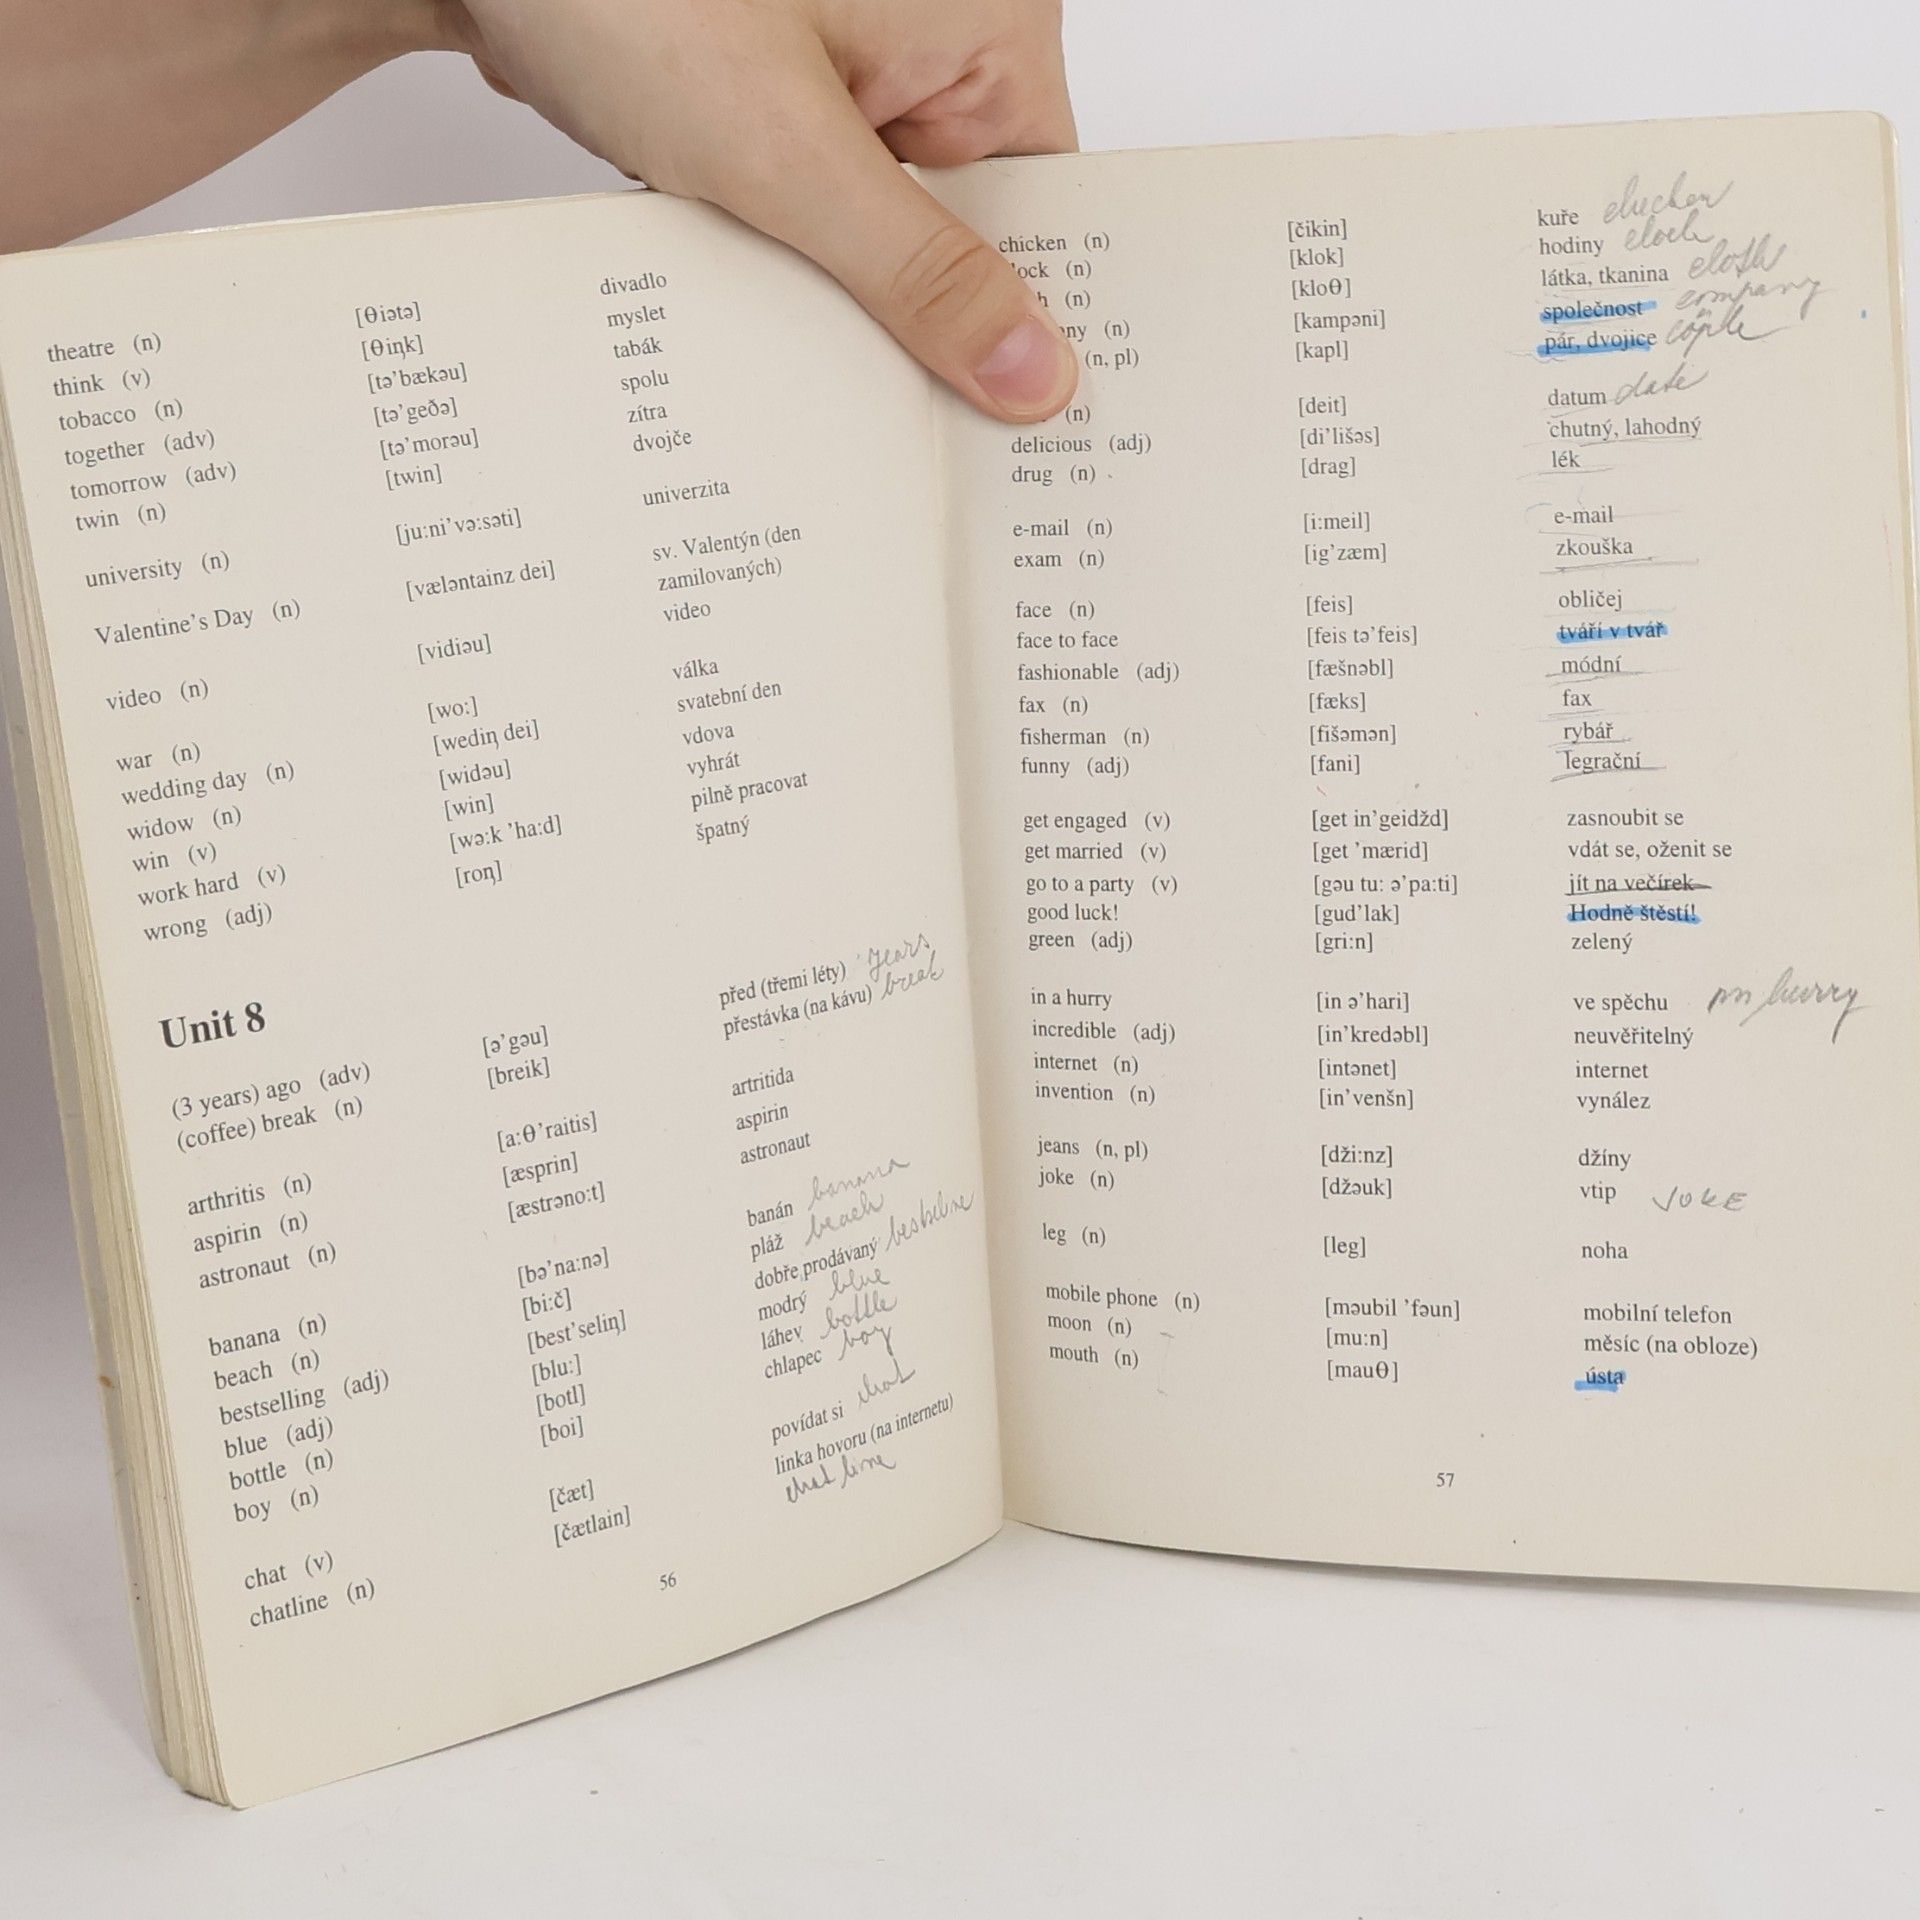 theatre (n) [θiətə] divadlo
think (v) [θiŋk] myslet
tobacco (n) [tə’bækəu] tabák
together (adv) [tə’geðə] spolu
tomorrow (adv) [tə’morəu] zítra
twin (n) [twin] dvojče
university (n) [ju:ni’və:səti] univerzita
Valentine’s Day (n) [væləntainz dei] sv. Valentýn (den
zamilovaných)
video (n) [vidiəu] video
war (n) [wo:] válka
wedding day (n) [wediŋ dei] svatební den
widow (n) [widəu] vdova
win (v) [win] vyhrát
work hard (v) [wə:k ’ha:d] pilně pracovat
wrong (adj) [roŋ] špatný
Unit 8
(3 years) ago (adv) [ə’gəu] před (třemi léty) years
(coffee) break (n) [breik] přestávka (na kávu) break
arthritis (n) [a:θ’raitis] artritida
aspirin (n) [æsprin] aspirin
astronaut (n) [æstrəno:t] astronaut
banana (n) [bə’na:nə] banán banana
beach (n) [bi:č] pláž beach
bestselling (adj) [best’seliŋ] dobře prodávaný
blue (adj) [blu:] modrý blue
bottle (n) [botl] láhev bottle
boy (n) [boi] chlapec boy
chat (v) [čæt] povídat si chat
chatline (n) [čætlain] linka hovoru (na internetu)
chat line
56
chicken (n) [čikin] kuře
ock (n) [klok] hodiny clock
h (n) [kloθ] látka, tkanina cloth
ny (n) [kampəni] společnost company
(n, pl) [kapl] pár, dvojice
(n) [deit] datum date
delicious (adj) [di’lišəs] chutný, lahodný
drug (n) [drag] lék
e-mail (n) [i:meil] e-mail
exam (n) [ig’zæm] zkouška
face (n) [feis] obličej
face to face [feis tə’feis] tváří v tvář
fashionable (adj) [fæšnəbl] módní
fax (n) [fæks] fax
fisherman (n) [fišəmən] rybář
funny (adj) [fani] legrační
get engaged (v) [get in’geidžd] zasnoubit se
get married (v) [get ’mærid] vdát se, oženit se
go to a party (v) [gəu tu: ə’pa:ti] jít na večírek
good luck! [gud’lak] Hodně štěstí!
green (adj) [gri:n] zelený
in a hurry [in ə’hari] ve spěchu hurry
incredible (adj) [in’kredəbl] neuvěřitelný
internet (n) [intənet] internet
invention (n) [in’venšn] vynález
jeans (n, pl) [dži:nz] džíny
joke (n) [džəuk] vtip JOKE
leg (n) [leg] noha
mobile phone (n) [məubil ’fəun] mobilní telefon
moon (n) [mu:n] měsíc (na obloze)
mouth (n) [mauθ] ústa
57